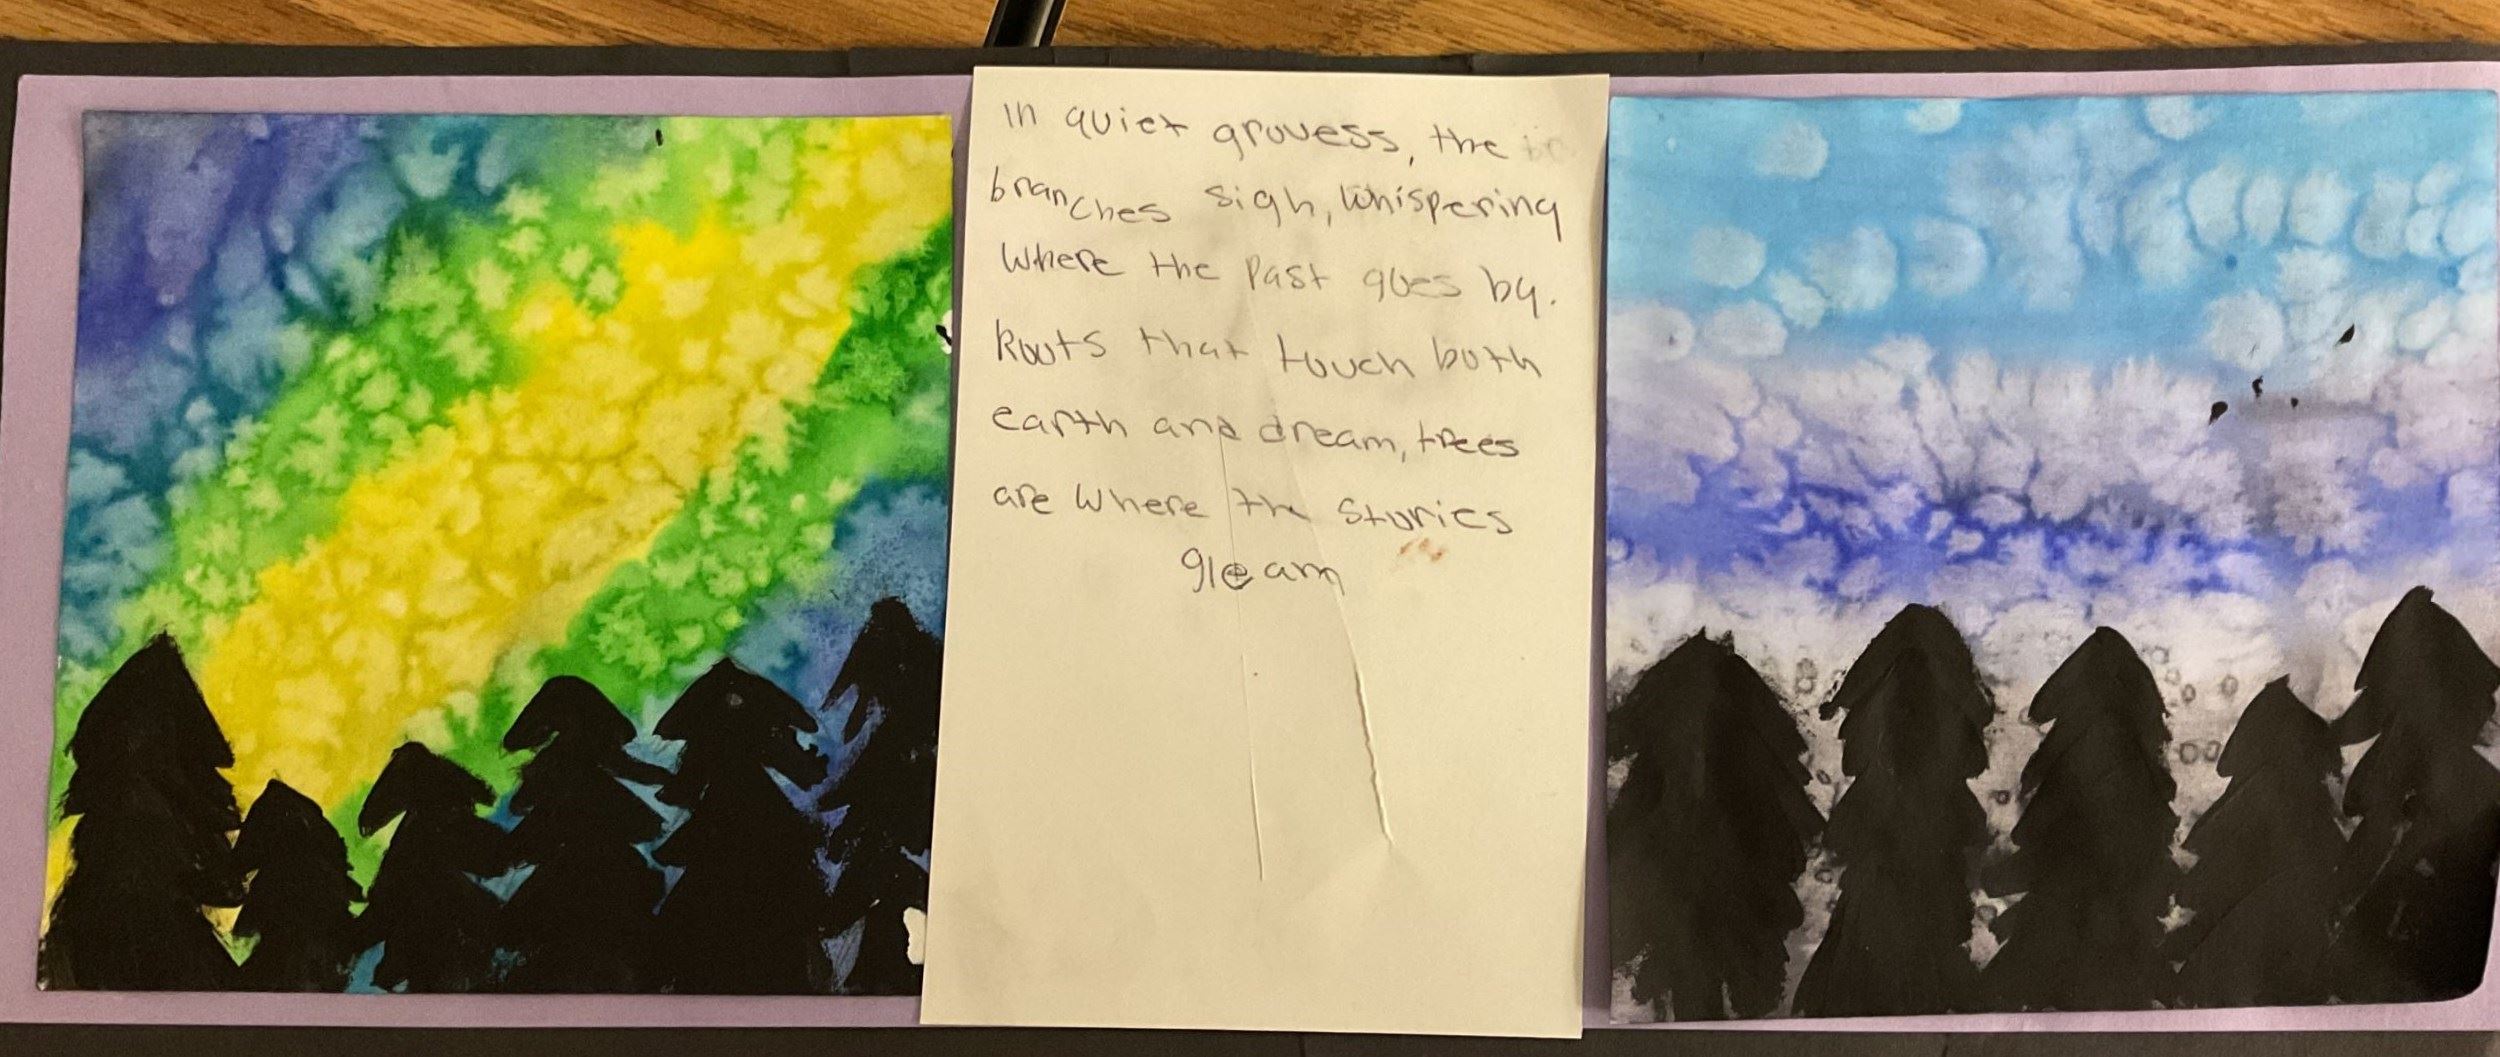 In quiet grovess, the
branches sigh, Whispering
Where the Past goes by.
Roots that touch both
earth and dream, trees
are where the Stories
gleam